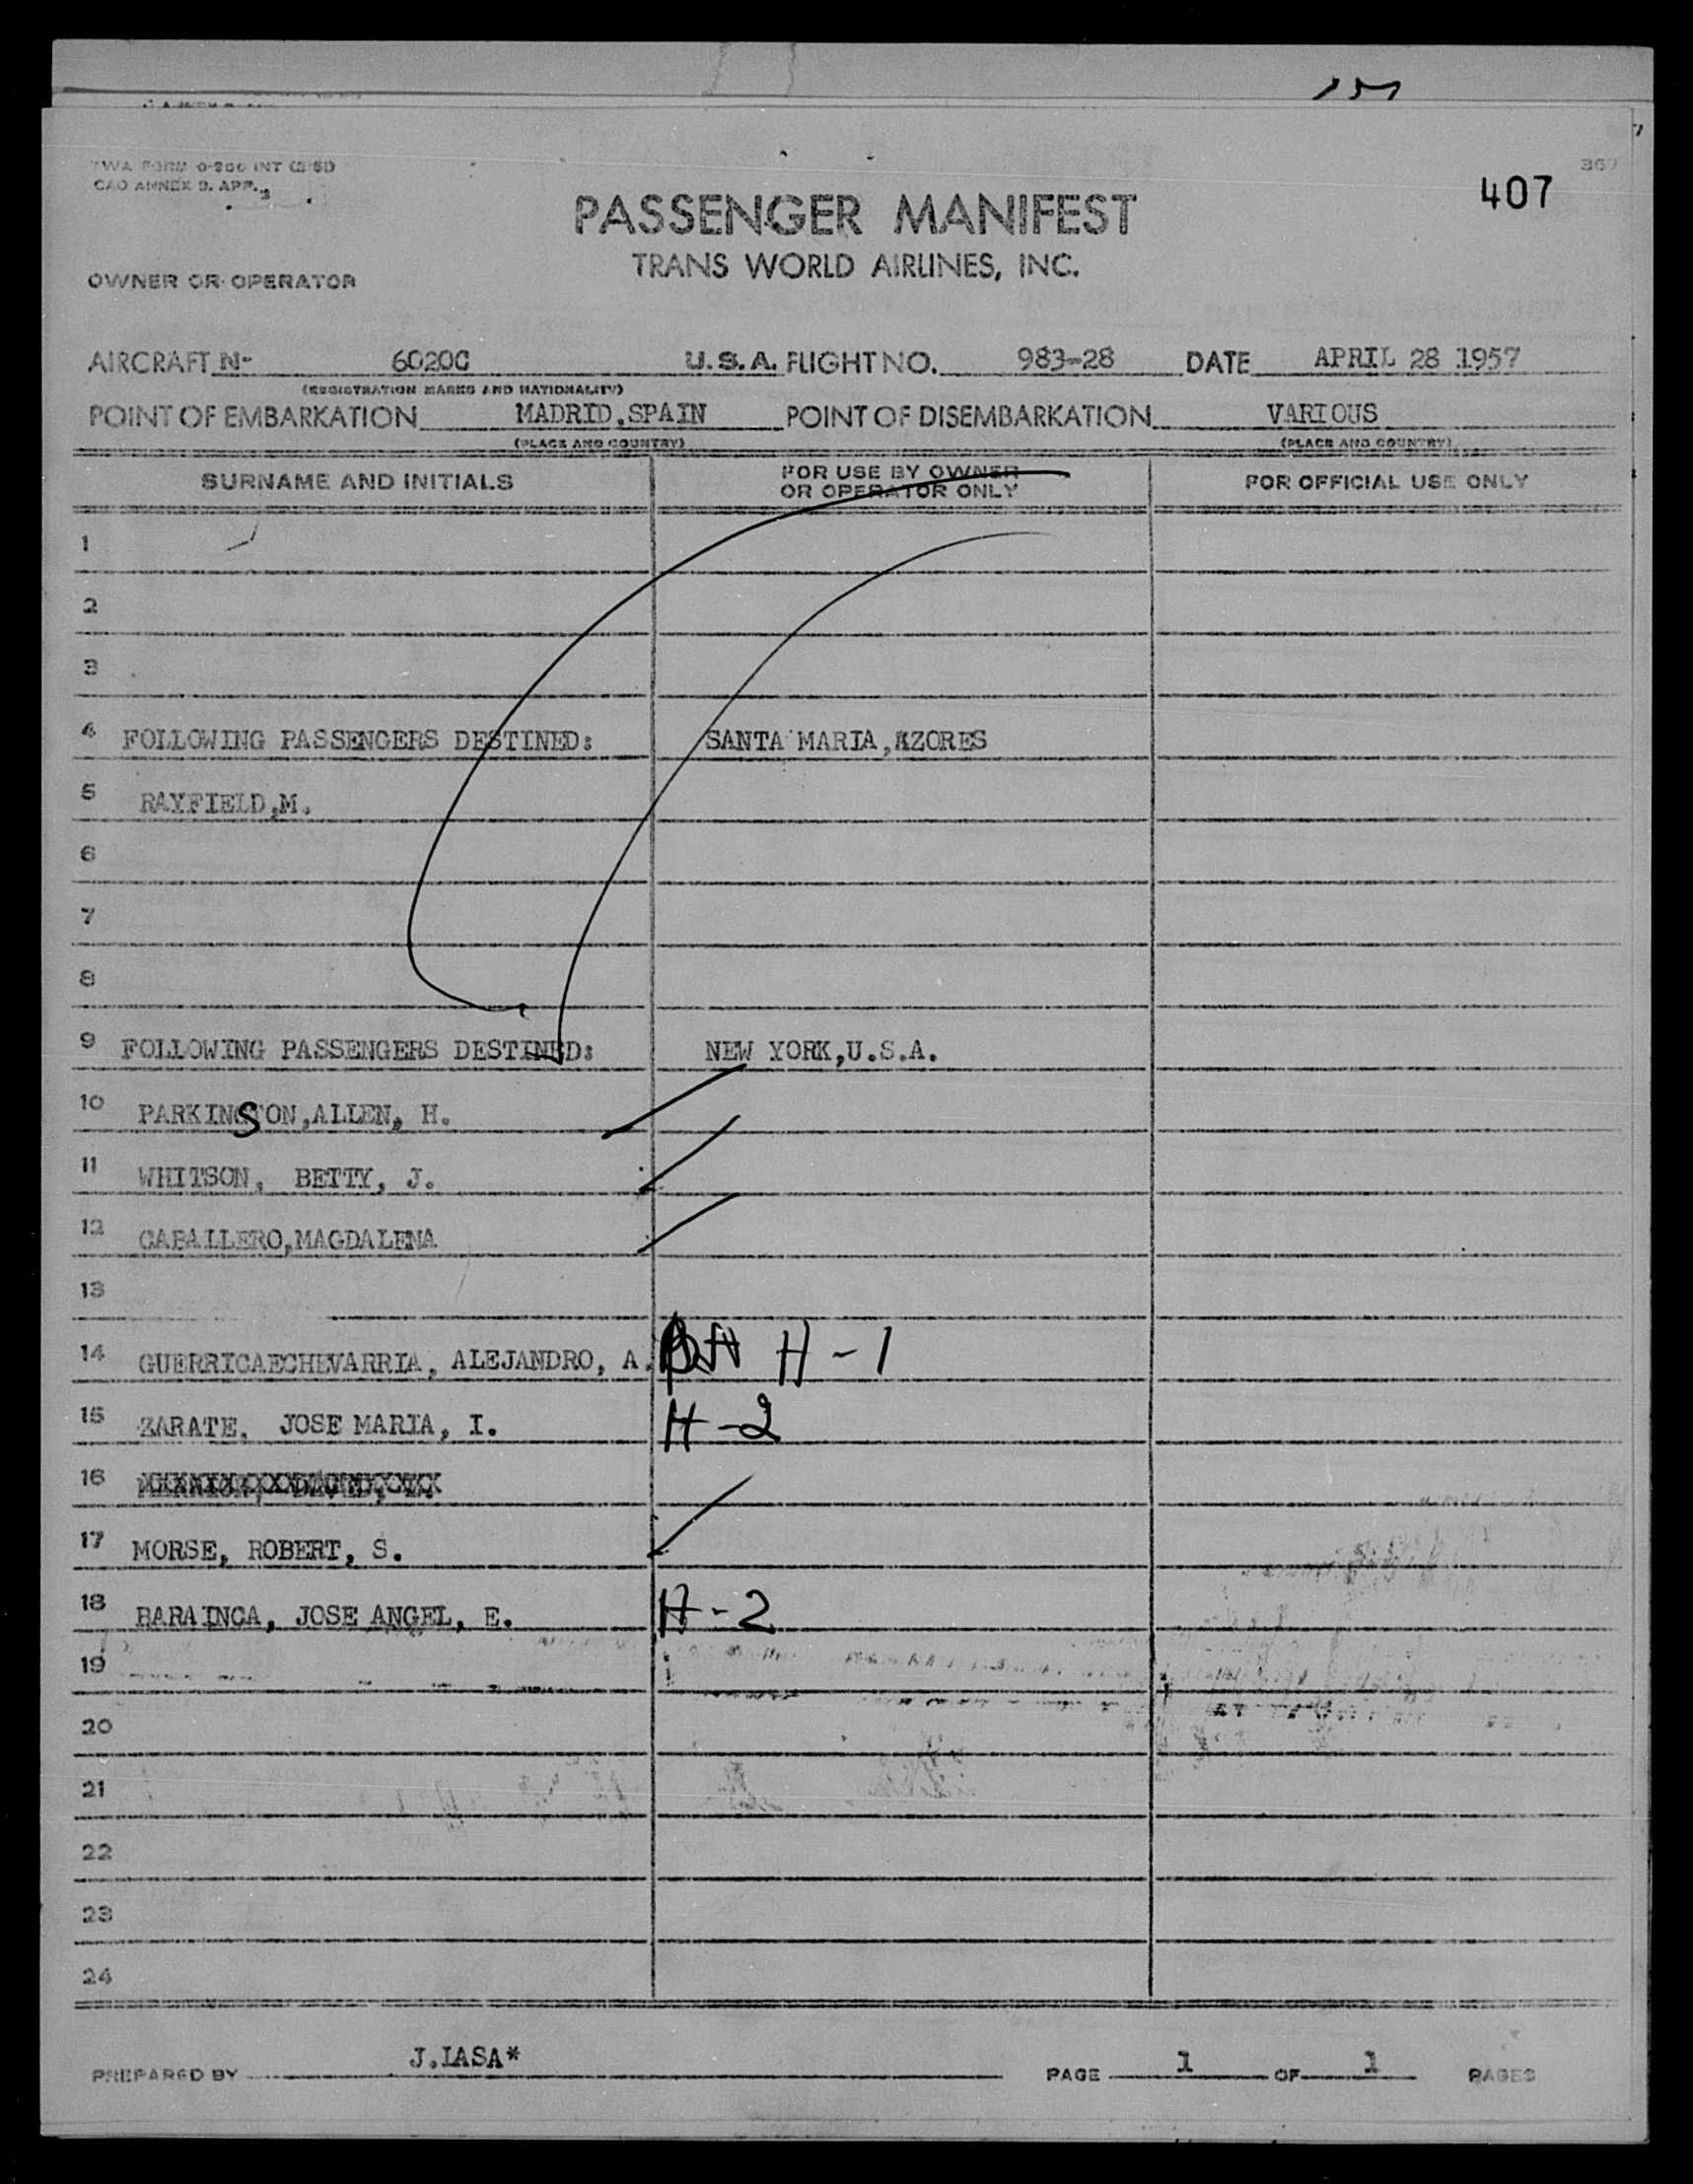 TWA FORM 0-200 INT (2-51)
CAO ANNEX 9. APP. 3
407
PASSENGER MANIFEST
TRANS WORLD AIRLINES, INC.
OWNER OR OPERATOR
AIRCRAFT N- 6020C U.S.A. FLIGHT NO. 983-28 DATE APRIL 28 1957
(REGISTRATION MARKS AND NATIONALITY)
POINT OF EMBARKATION MADRID,SPAIN POINT OF DISEMBARKATION VARIOUS
(PLACE AND COUNTRY) (PLACE AND COUNTRY)
SURNAME AND INITIALS FOR USE BY OWNER OR OPERATOR ONLY FOR OFFICIAL USE ONLY
1
2
3
4 FOLLOWING PASSENGERS DESTINED: SANTA MARIA,AZORES
5 RAYFIELD,M.
6
7
8
9 FOLLOWING PASSENGERS DESTINED: NEW YORK,U.S.A.
10 PARKINSON,ALLEN, H.
11 WHITSON, BETTY, J.
12 CABALLERO,MAGDALENA
13
14 GUERRICAECHEVARRIA, ALEJANDRO, A. H-1
15 ZARATE, JOSE MARIA, I. H-2
16
17 MORSE, ROBERT, S.
18 BARAINCA, JOSE ANGEL, E. H-2
19
20
21
22
23
24
PREPARED BY J.IASA* PAGE 1 OF 1 PAGES